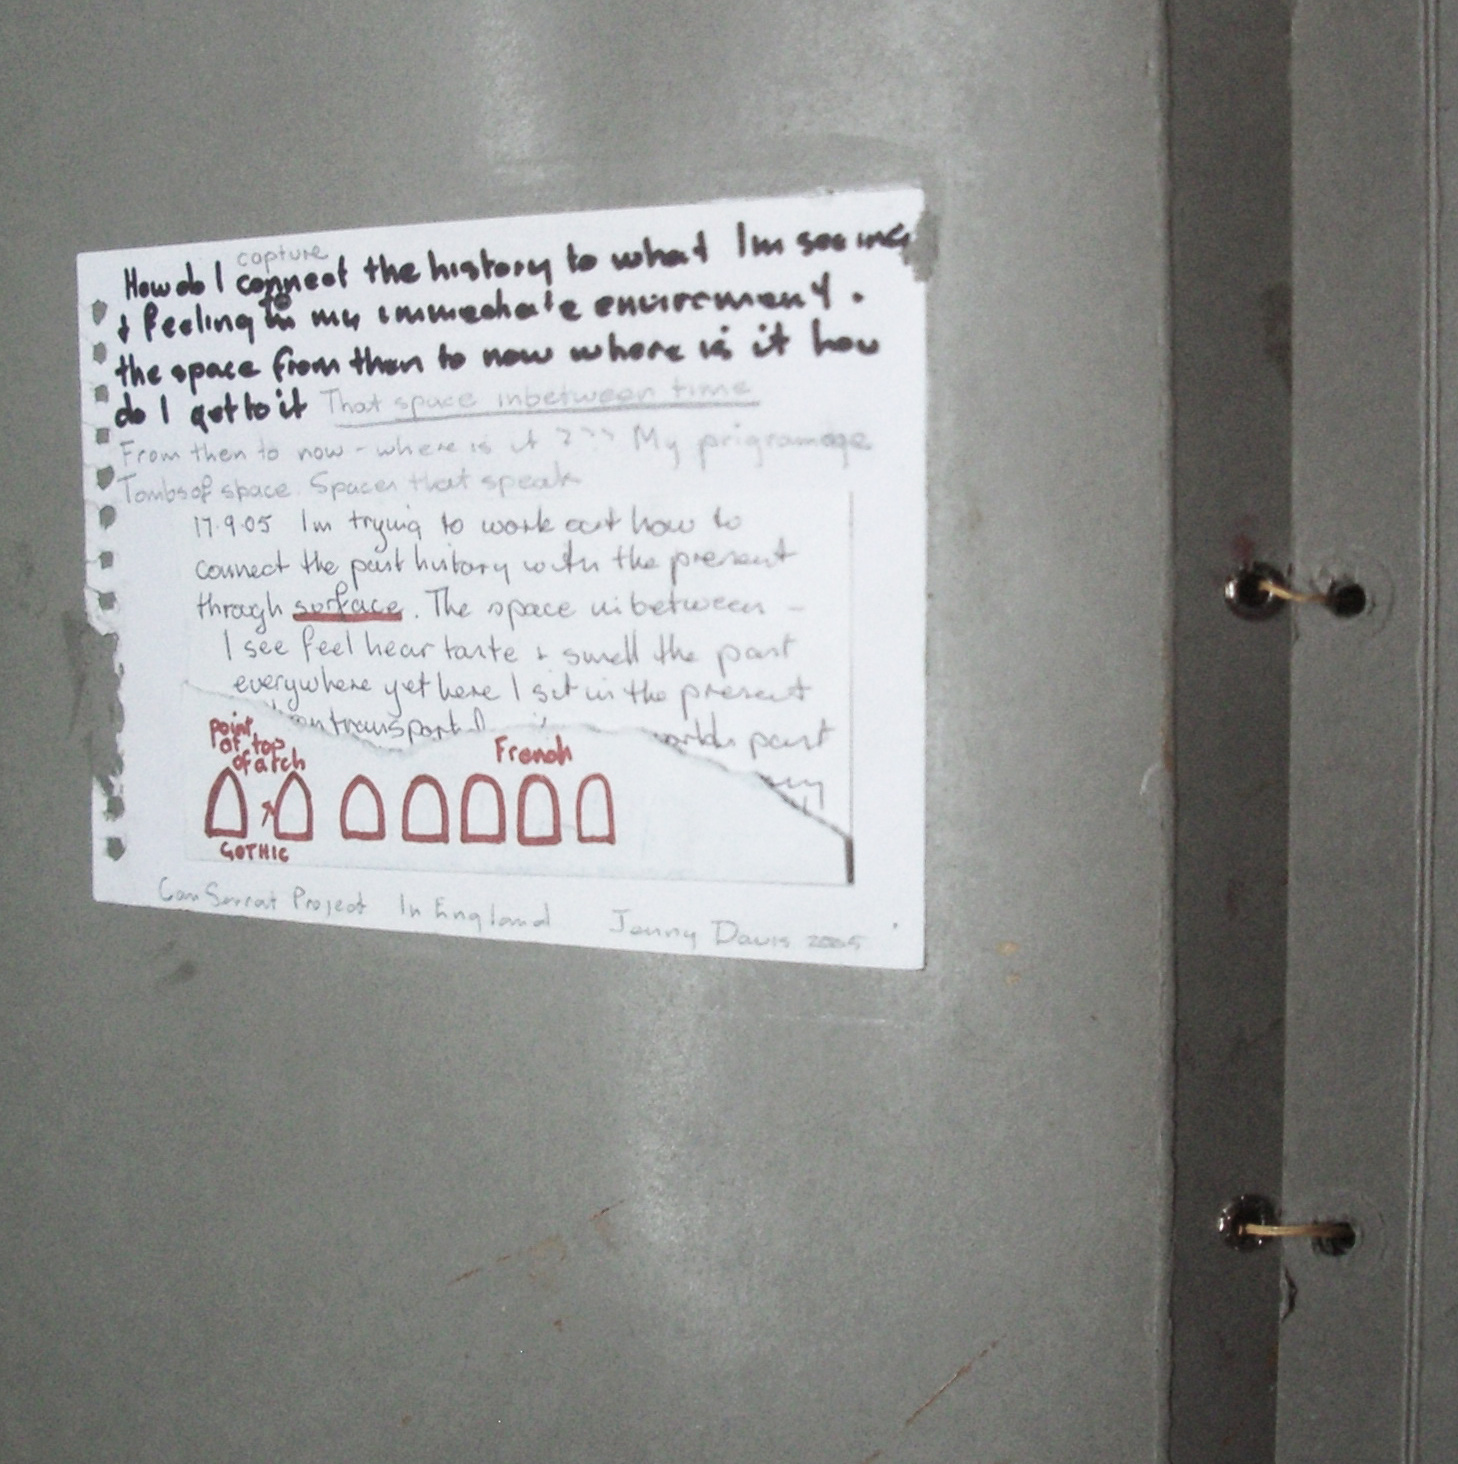 capture
How do I connect the history to what Im seeing
+ feeling in my immediate enviroment.
to
the space from then to now where is it how
do I get to it That space inbetween time
From then to now - where is it ??? My prigramage
Tombs of space. Spaces that speak
17.9.05 Im trying to work out how to
connect the past history with the present
through surface. The space inbetween -
I see feel hear taste + smell the past
everywhere yet here I sit in the present
transport
past
point
at top
of arch
French
GOTHIC
Can Serrat Project In England Jenny Davis 2005